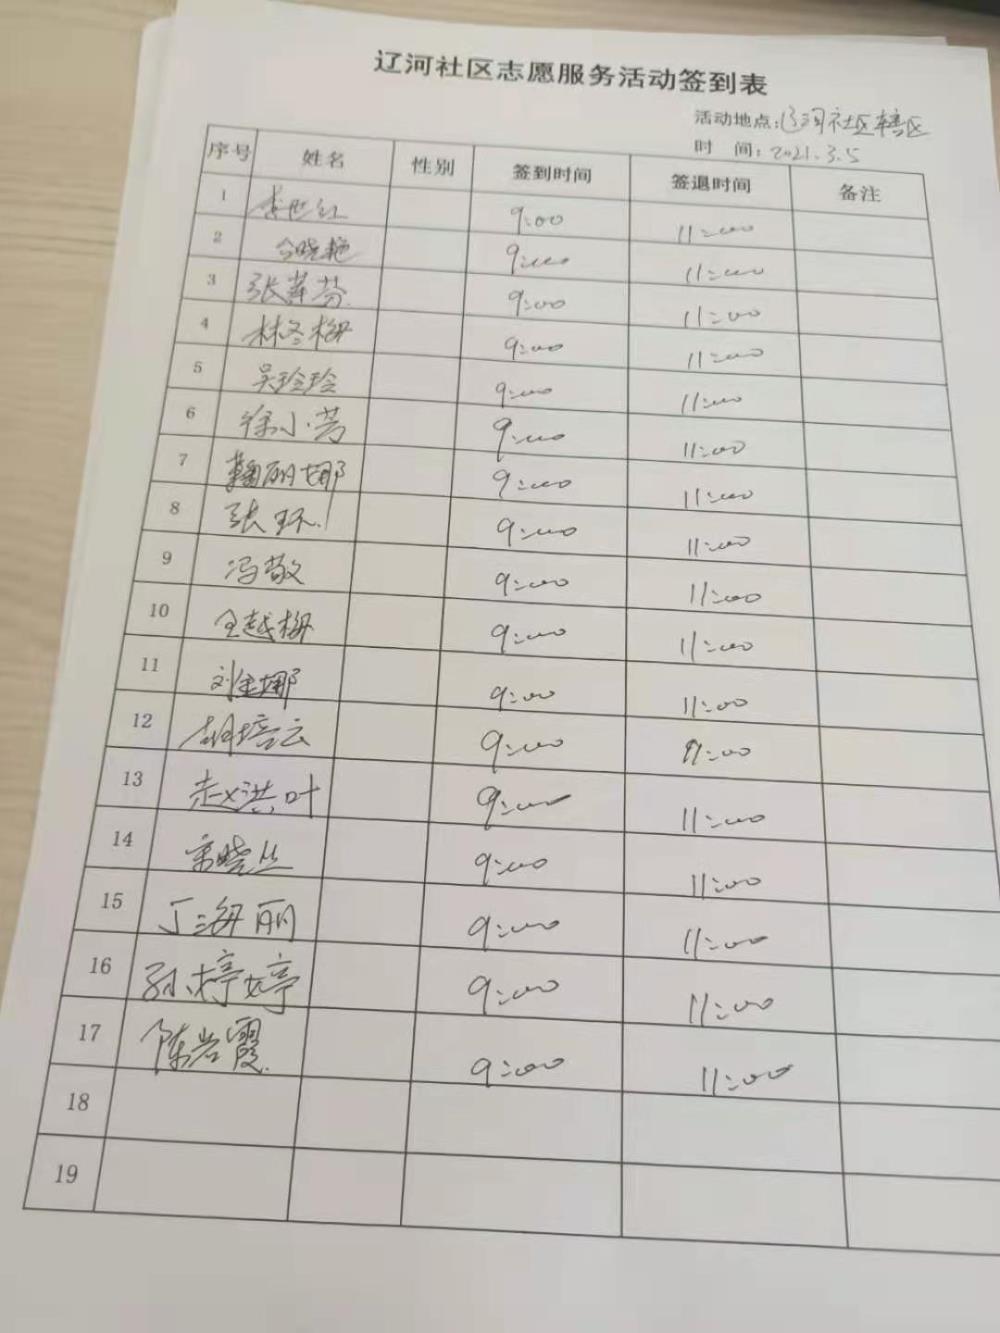 辽河社区志愿服务活动签到表
活动地点:辽河社区辖区
时 间:2021.3.5
序号 姓名 性别 签到时间 签退时间 备注
1 李世红 9:00 11:00
2 晓艳 9:00 11:00
3 张苹芬 9:00 11:00
4 林冬梅 9:00 11:00
5 吴玲玲 9:00 11:00
6 徐小芳 9:00 11:00
7 鞠丽娜 9:00 11:00
8 张环 9:00 11:00
9 冯敬 9:00 11:00
10 王越梅 9:00 11:00
11 刘金娜 9:00 11:00
12 胡培云 9:00 :00
13 赵洪叶 9:00 11:00
14 晓丛 9:00 11:00
15 丁海丽 9:00 11:00
16 孙婷婷 9:00 11:00
17 陈岩霞 9:00 11:00
18
19